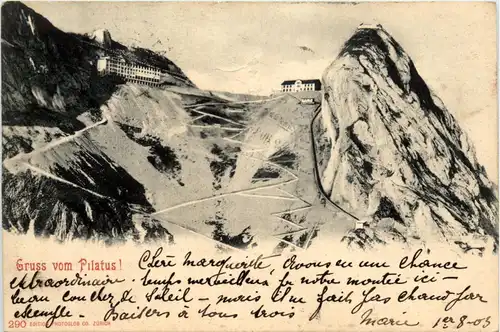 Gruss vom Pilatus!
Chère Marguerite, Avons eu une chance
extraordinaire. temps merveilleux notre montée ici -
beau coucher de Soleil - mais il ne fait pas chaud par
exemple. Baisers à tous trois Marie 1er-8-03
290 EDITION PHOTOGLOB CO. ZÜRICH